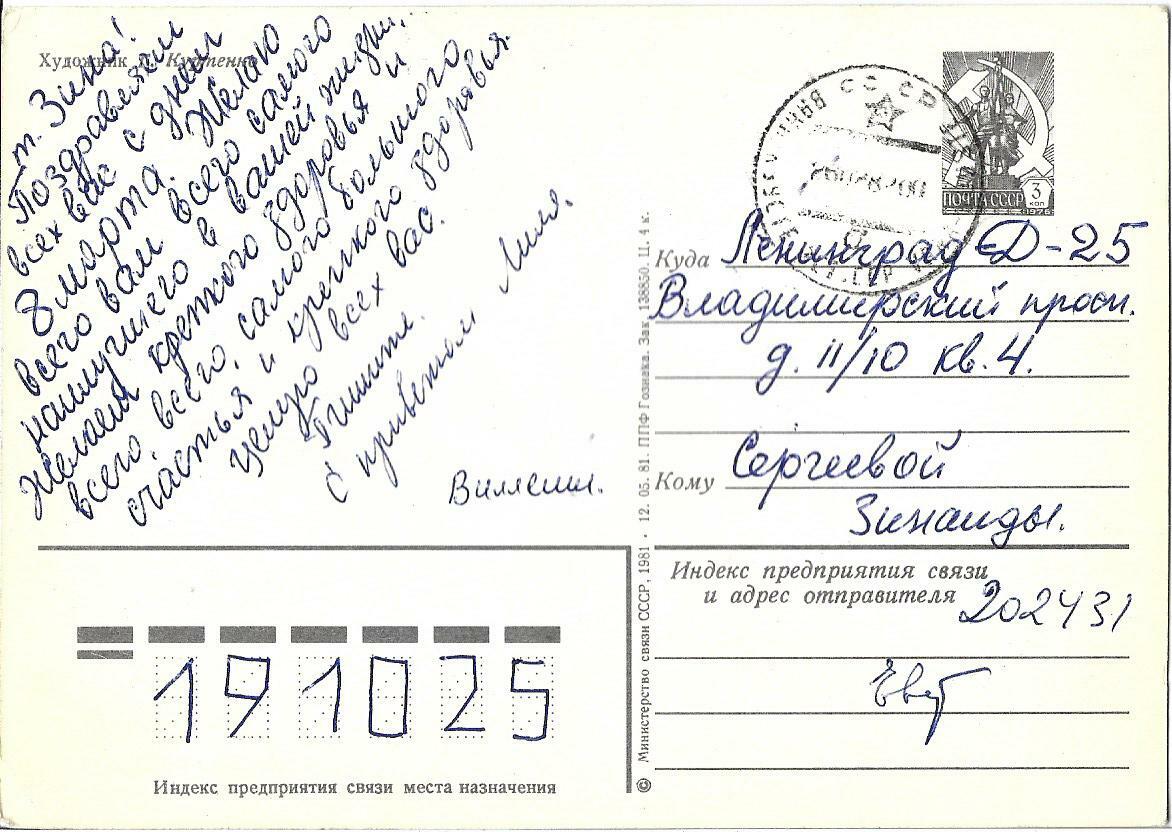 Художник Л. Куртенко
т. Зина!
Поздравляем
всех вас с днём
8 марта. Желаю
всего вам всего самого
наилучшего в вашей жизни.
Желаем крепкого здоровья и
всего, всего, самого большого
счастья и крепкого здоровья.
Целую всех вас.
Пишите.
С приветом Лиля.
ПОЧТА СССР
3
коп
1976
СССР
Куда Ленинград Д-25
Владимирский просп.
д. 11/10 кв. 4.
Кому Сергеевой
Зинаиды.
Индекс предприятия связи
и адрес отправителя 202431
191025
Индекс предприятия связи места назначения
© Министерство связи СССР, 1981 · 12. 05. 81. ППФ Гознака. Зак. 138850. Ц. 4 к.